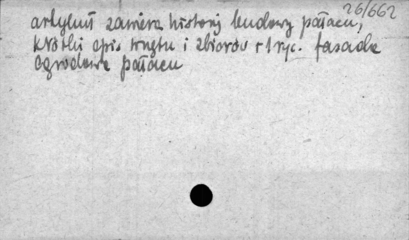 26/662
artykuł zawiera historię budowy pałacu,
krótki opis wnętrz i zbiorów + 1 ryc. fasada
ogrodowa pałacu